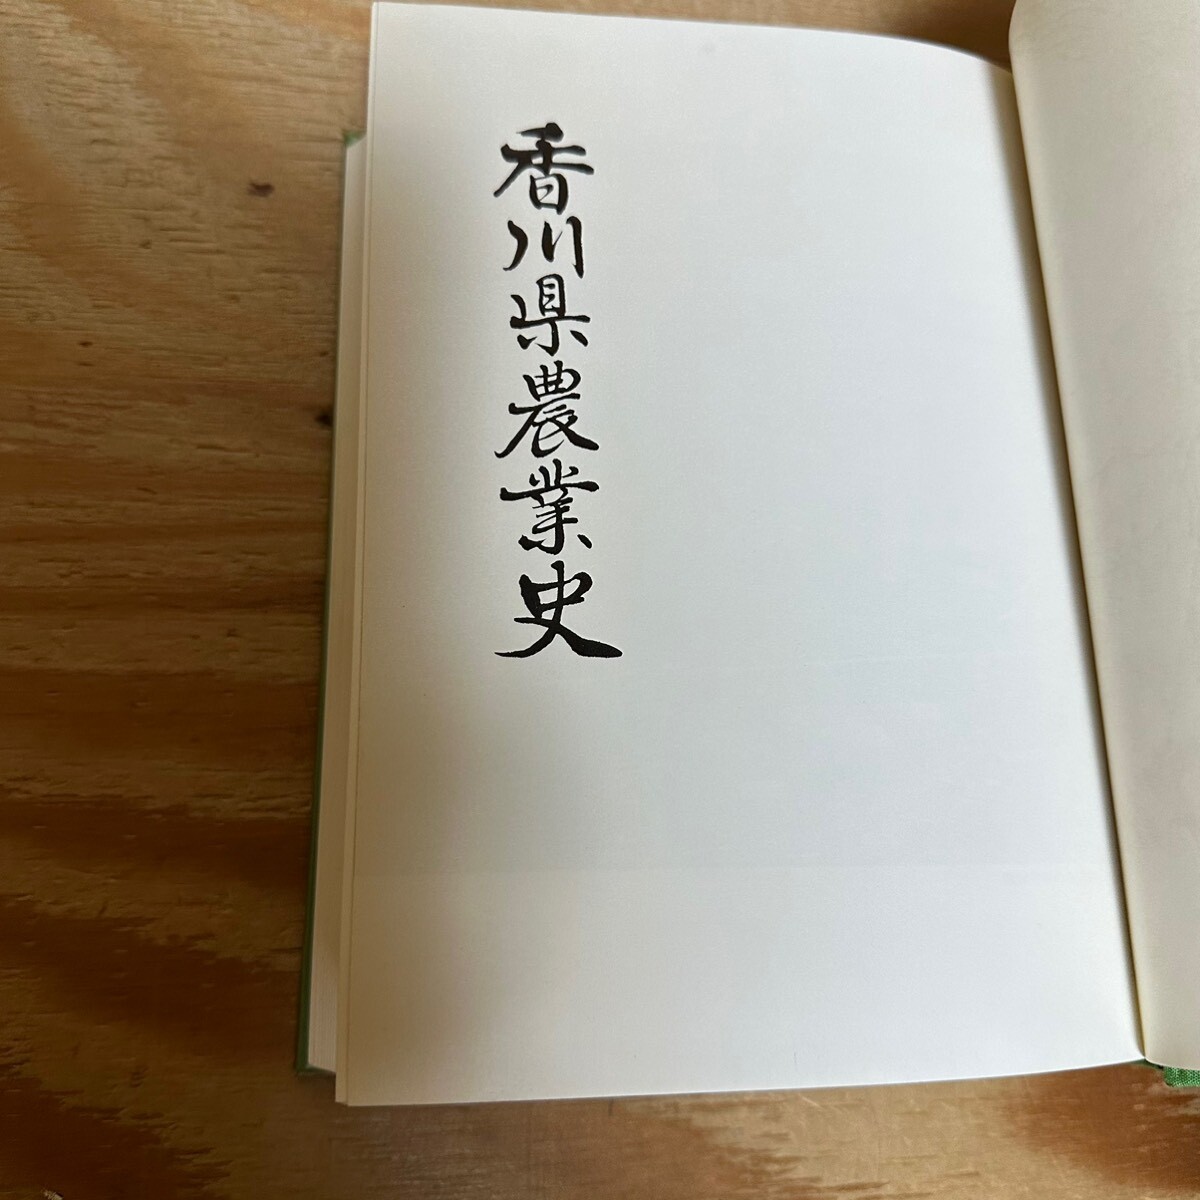 香川県農業史